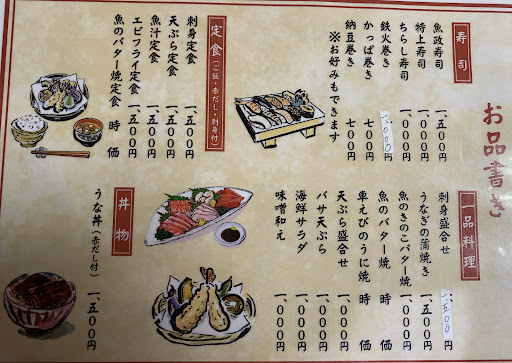 お品書き
寿司
魚政寿司 一、五〇〇円
特上寿司 一、〇〇〇円
ちらし寿司 一、〇〇〇円
鉄火巻き 一、〇〇〇円
かっぱ巻き 七〇〇円
納豆巻き 七〇〇円
※お好みもできます
定食(ご飯・赤だし・刺身付)
刺身定食 一、五〇〇円
天ぷら定食 一、五〇〇円
魚汁定食 一、五〇〇円
エビフライ定食 一、五〇〇円
魚のバター焼定食 時価
一品料理
刺身盛合せ 一、五〇〇円
うなぎの蒲焼き 一、五〇〇円
魚のきのこバター焼 一、〇〇〇円
魚のバター焼 時価
車えびのうに焼 時価
天ぷら盛合せ 一、〇〇〇円
バサ天ぷら 一、〇〇〇円
海鮮サラダ 一、〇〇〇円
味噌和え 一、〇〇〇円
丼物
うな丼(赤だし付) 一、五〇〇円